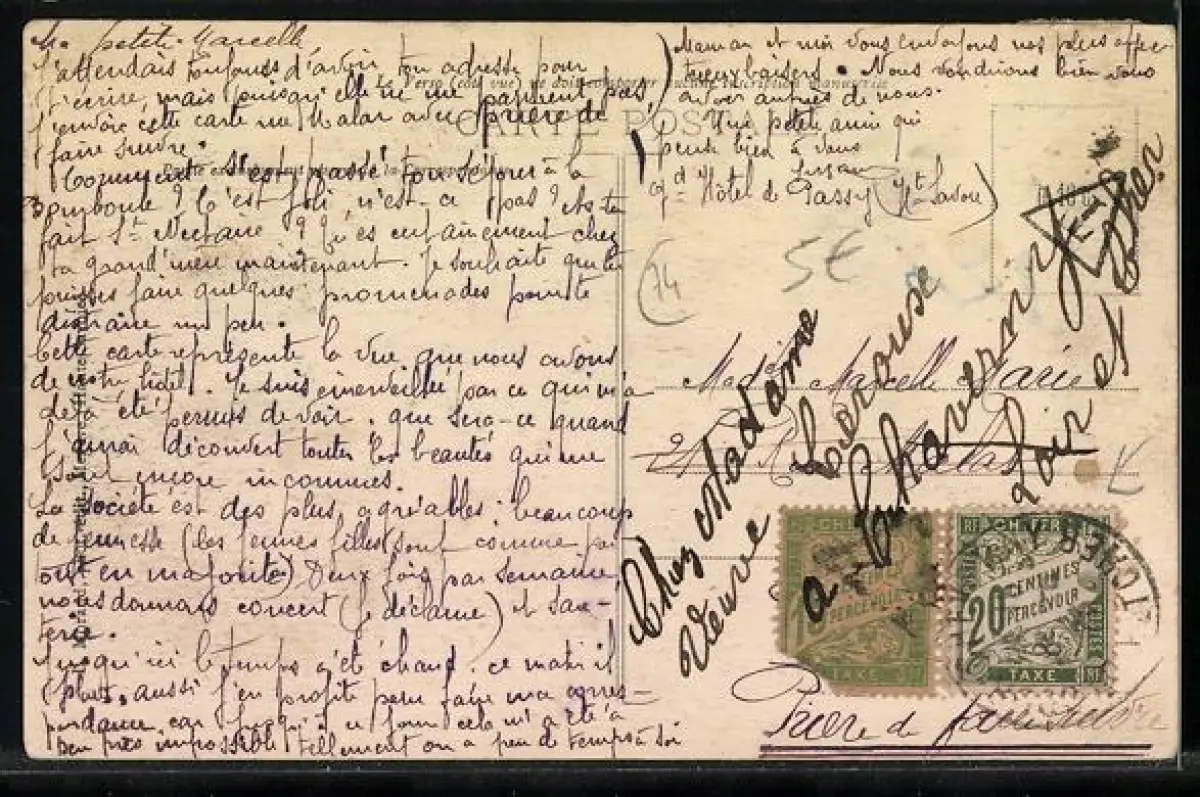 Ma petite Marcelle
J'attendais toujours d'avoir ton adresse pour
t'écrire, mais puisqu'elle ne me parvient pas,
j'envoie cette carte rue Malar avec prière de
faire suivre.
Comment s'est passé ton séjour à la
Bourboule ? C'est joli, n'est-ce pas ? As-tu
fait St Nectaire ? Tu es certainement chez
ta grand'mère maintenant. Je souhaite que tu
puisses faire quelques promenades pour te
distraire un peu.
Cette carte représente la vue que nous avons
de notre hôtel. Je suis émerveillée par ce qui m'a
déjà été permis de voir. que sera-ce quand
j'aurai découvert toutes les beautés qui me
sont encore inconnues.
La société est des plus agréables ; beaucoup
de jeunesse (les jeunes filles sont comme par
tout en majorité) Deux fois par semaine,
nous donnons concert (je déclame) et sau-
terie.
Jusqu'ici le temps a été chaud. ce matin il
pleut, aussi j'en profite pour faire ma corres-
pondance car jusqu'à ce jour cela m'a été à
peu près impossible tellement on a peu de temps à soi
Maman et moi vous envoyons nos plus affec-
tueux baisers. Nous voudrions bien vous
avoir auprès de nous.
Une petite amie qui
pense bien à vous
Suzan
gd Hôtel de Passy (Hte Savoie)
CARTE POSTALE
(74
5€
T
Madelle Marcelle Marie
Rue Malar
Chez Madame
Veuve Lerouse
a Chaverny
Loir et Cher
CHIFFRE
CENTIMES
A PERCEVOIR
TAXE
RF CHIFFRE
20 CENTIMES
A PERCEVOIR
TAXE RF
Prière de faire suivre